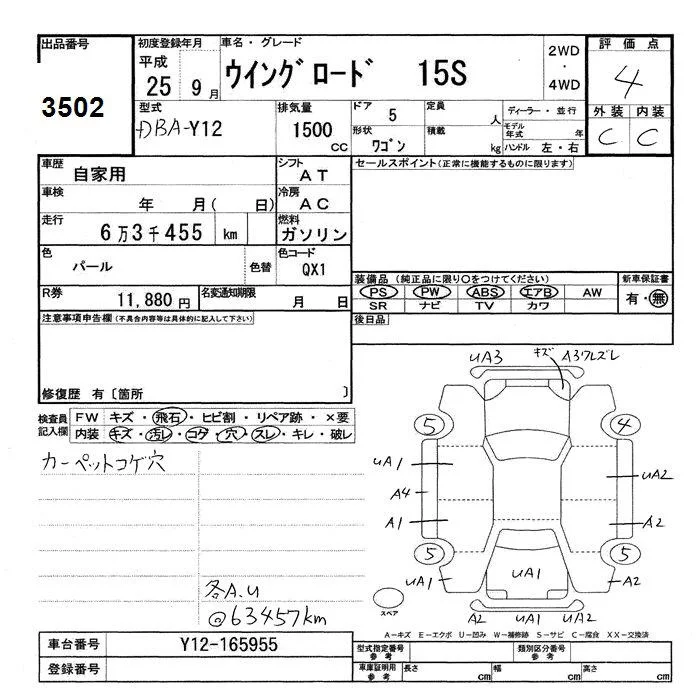 出品番号
3502
初度登録年月
平成
25 9月
車名・グレード
ウイングロード 15S
2WD
・
4WD
評価点
4
外装 内装
C C
型式
DBA-Y12
排気量
1500
CC
ドア 5
形状 ワゴン
定員 人
積載 kg
ディーラー・並行
モデル年式 年
ハンドル 左・右
車歴 自家用
シフト AT
セールスポイント(正常に機能するものに限ります)
車検 年 月( 日)
冷房 AC
走行 6万3千455 km
燃料 ガソリン
色 パール 色替
色コード QX1
装備品(純正品に限り○をつけてください)
新車保証書
PS PW ABS エアB AW
有・無
SR ナビ TV カワ
R券 11,880円
名変通知期限 月 日
後日品
注意事項申告欄(不具合内容等は具体的に記入して下さい)
修復歴 有〔箇所 〕
検査員記入欄
FW キズ・飛石・ヒビ割・リペア跡・×要
内装 キズ・汚レ・コゲ・穴・スレ・キレ・破レ
カーペットコゲ穴
各A.U
@63457km
UA3 キズ A3ワレズレ
5 4
UA1 UA2
A4
A1 A2
5 5
UA1 UA1 A2
スペア
A2 UA1 UA2
A-キズ E-エクボ U-凹み W-補修跡 S-サビ C-腐食 XX-交換済
車台番号 Y12-165955
登録番号
型式指定番号 参考
類別区分番号 参考
車庫証明用 参考
長さ cm
幅 cm
高さ cm